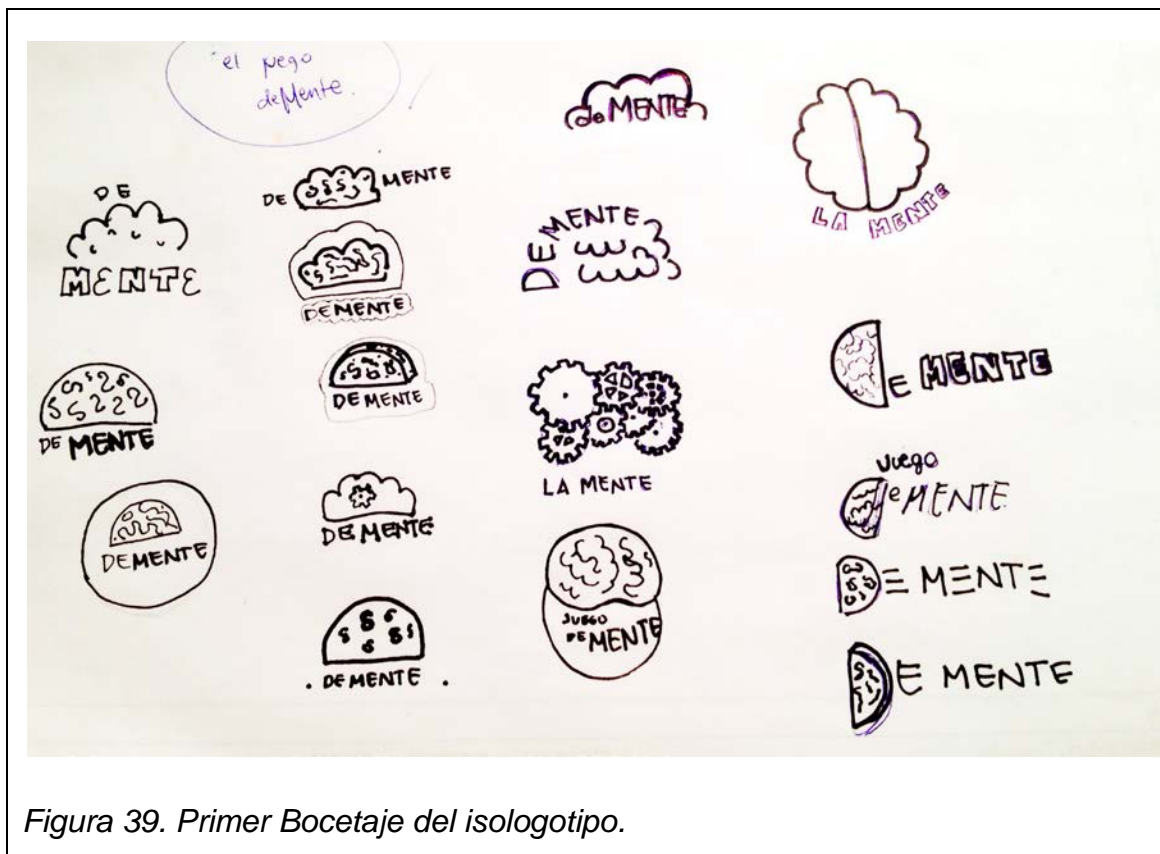 el
deMente.
DE
MENTE
DE MENTE
DE MENTE
DE MENTE
DE MENTE
DE MENTE
DE MENTE
DE MENTE
. DE MENTE .
de MENTE
DE MENTE
LA MENTE
JUEGO
DE MENTE
LA MENTE
E MENTE
Juego
e MENTE
E MENTE
E MENTE
Figura 39. Primer Bocetaje del isologotipo.